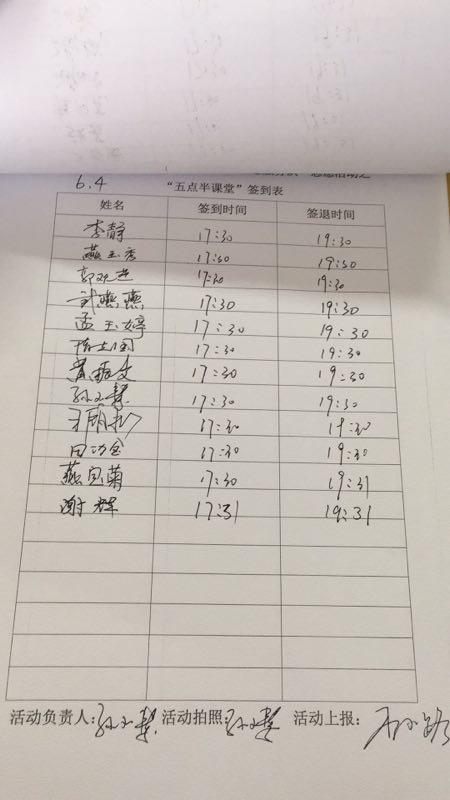 6.4
“五点半课堂”签到表
姓名 签到时间 签退时间
李静 17:30 19:30
燕玉秀 17:30 19:30
17:30 19:30
武燕燕 17:30 19:30
孟玉婷 17:30 19:30
17:30 19:30
17:30 19:30
孙小慧 17:30 19:30
17:30 19:30
田功全 17:30 19:30
燕宝菊 17:30 19:31
谢辉 17:31 19:31
活动负责人:孙小慧 活动拍照:孙小慧 活动上报: